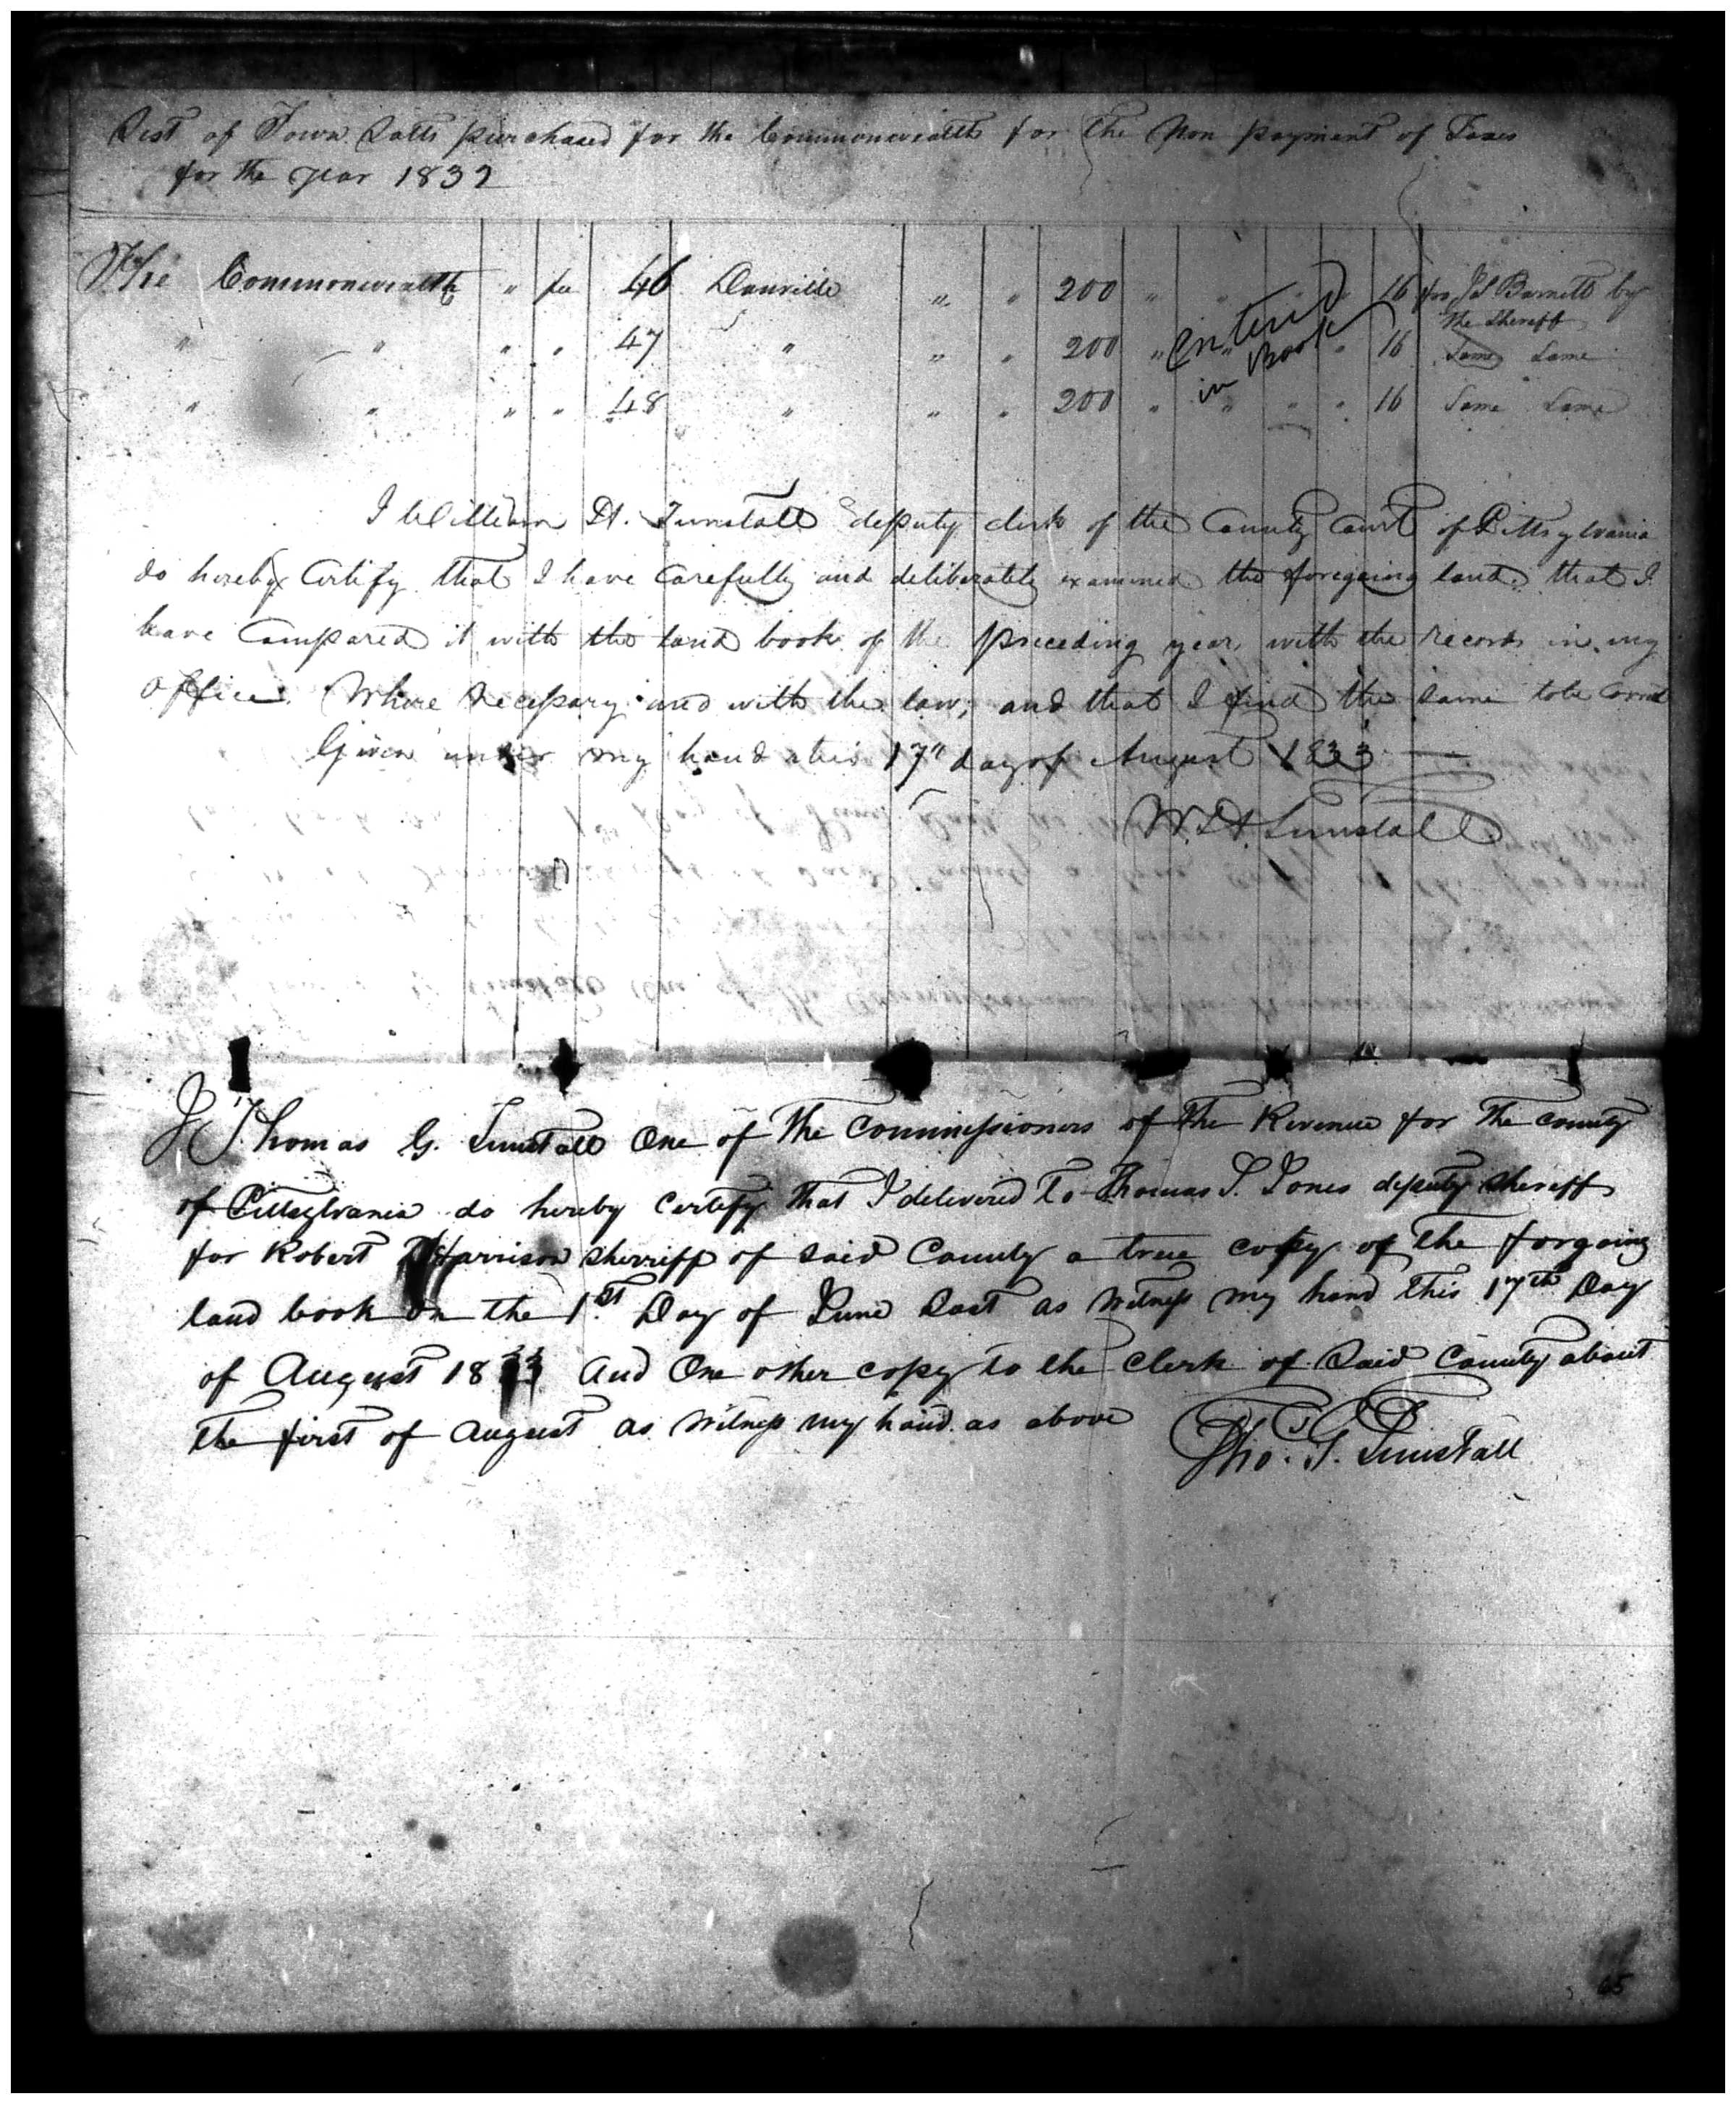 List of Town Lotts purchased for the Commonwealth for the Non payment of Taxes
for the year 1832
The Commonwealth " fee 46 Danville " " 200 " " " " 16 for Barnett by
the Sheriff
" " " " 47 " " " 200 " " " 16 Same Same
" " " " 48 " " " 200 " " " " 16 Same Same
Entered
in Book
I William H. Tunstall deputy clerk of the County Court of Pittsylvania
do hereby Certify that I have Carefully and deliberately examined the foregoing land. that I
have Compared it with the land book of the preceding year, with the records in my
office. Where necessary and with the law; and that I find the same to be Correct
Given under my hand this 17" day of August 1833
W. H. Tunstall
I Thomas G. Tunstall One of the Commissioners of the Revenue for the county
of Pittsylvania do hereby Certify that I delivered to Thomas S. Jones deputy sheriff
for Robert Harrison sherriff of said County a true copy of the forgoing
land book on the 1st Day of June Last as Witness my hand this 17th Day
of August 1833 and One other copy to the Clerk of Said County about
the first of august as Witness my hand as above
Tho. G. Tunstall
65